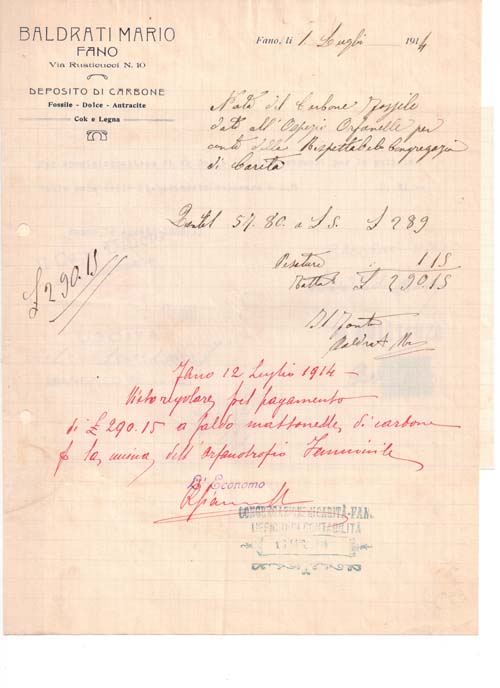 BALDRATI MARIO
FANO
Via Rusticucci N. 10
DEPOSITO DI CARBONE
Fossile - Dolce - Antracite
Cok e Legna
Fano, li 1 Luglio 1914
Nota del Carbone Fossile
dato all' Ospizio Orfanelle per
conto della Rispettabile Congregazion
di Carità
57.80 a £ 5. £ 289
Pesature 1 15
£ 290.15
£ 290.15
Baldrati Mo
Fano 12 Luglio 1914 -
Visto regolare pel pagamento
di £ 290.15 a saldo mattonelle di carbone
p la cucina dell' Orfanotrofio Femminile
L' Economo
CONGREGAZIONE DI CARITÀ - FANO
UFFICIO DI CONTABILITÀ